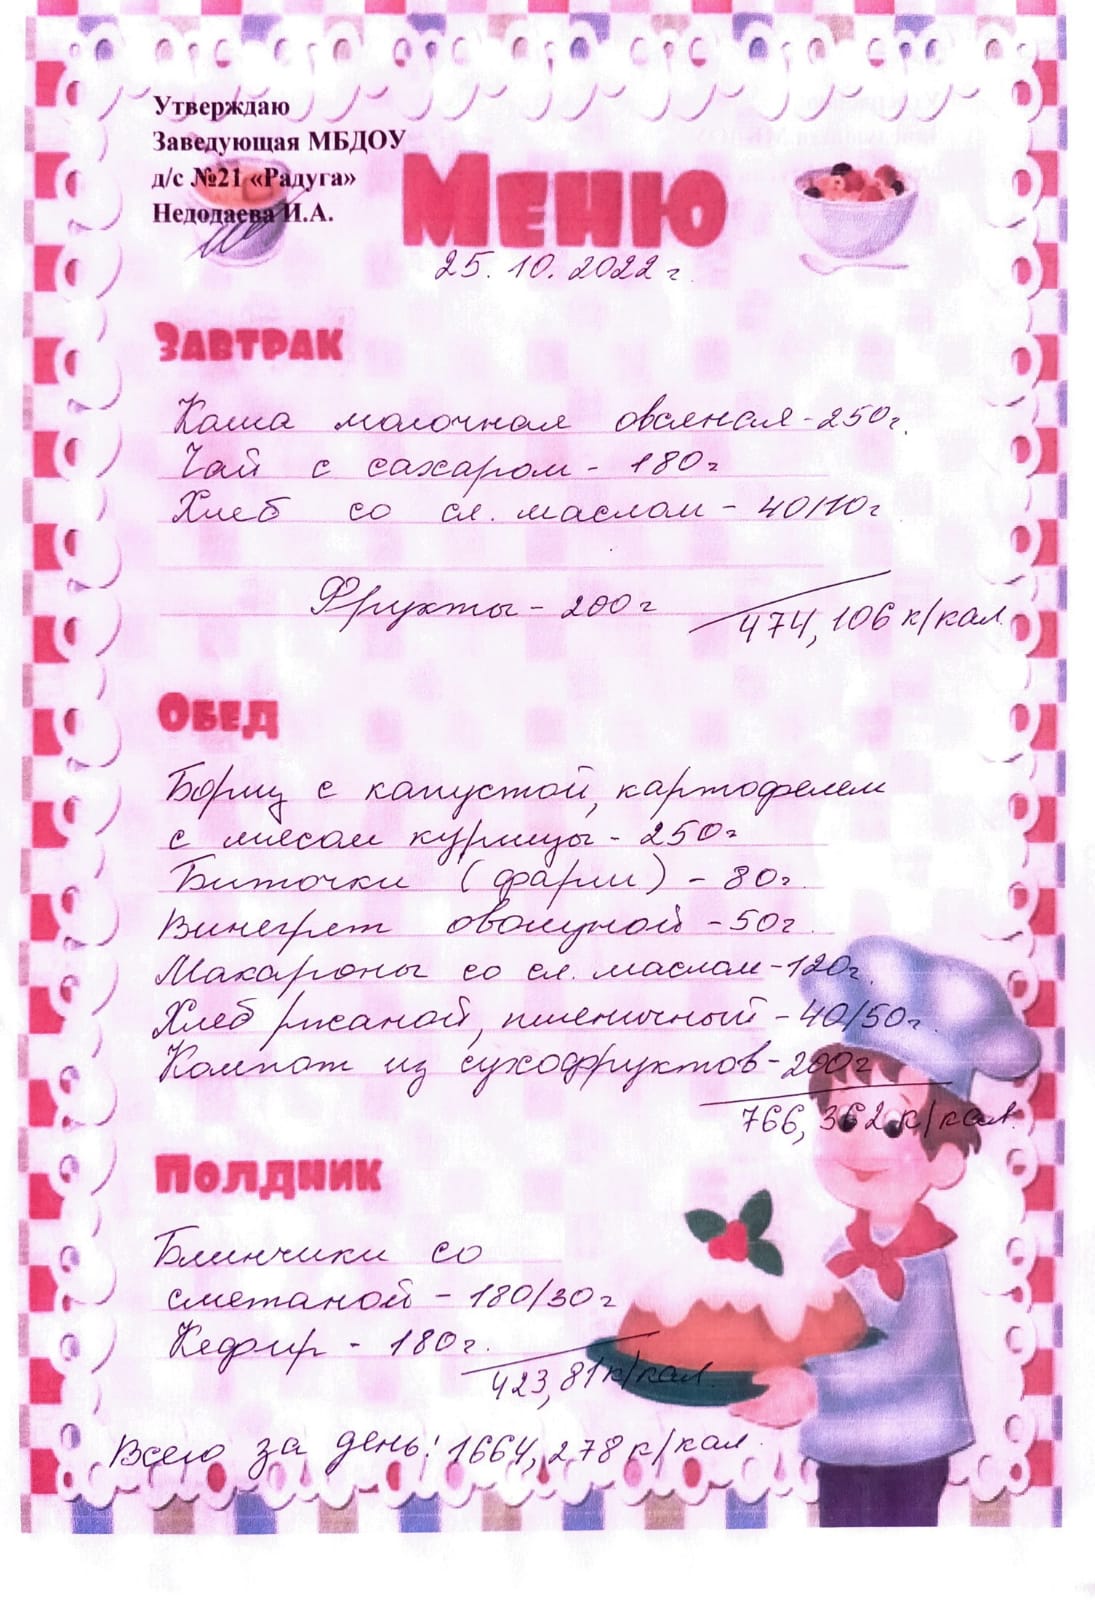 Утверждаю
Заведующая МБДОУ
д/с №21 «Радуга»
Недодаева И.А.
Меню
25.10.2022 г.
Завтрак
Каша молочная овсяная - 250 г.
Чай с сахаром - 180 г
Хлеб со сл. маслом - 40/10 г
Фрукты - 200 г
474,106 к/кал.
Обед
Борщ с капустой, картофелем
с мясом курицы - 250 г
Биточки (фарш) - 80 г.
Винегрет овощной - 50 г.
Макароны со сл. маслом - 120 г.
Хлеб ржаной, пшеничный - 40/50 г.
Компот из сухофруктов - 200 г
766,362 к/кал.
Полдник
Блинчики со
сметаной - 180/30 г
Кефир - 180 г.
423,81 к/кал.
Всего за день: 1664,278 к/кал.